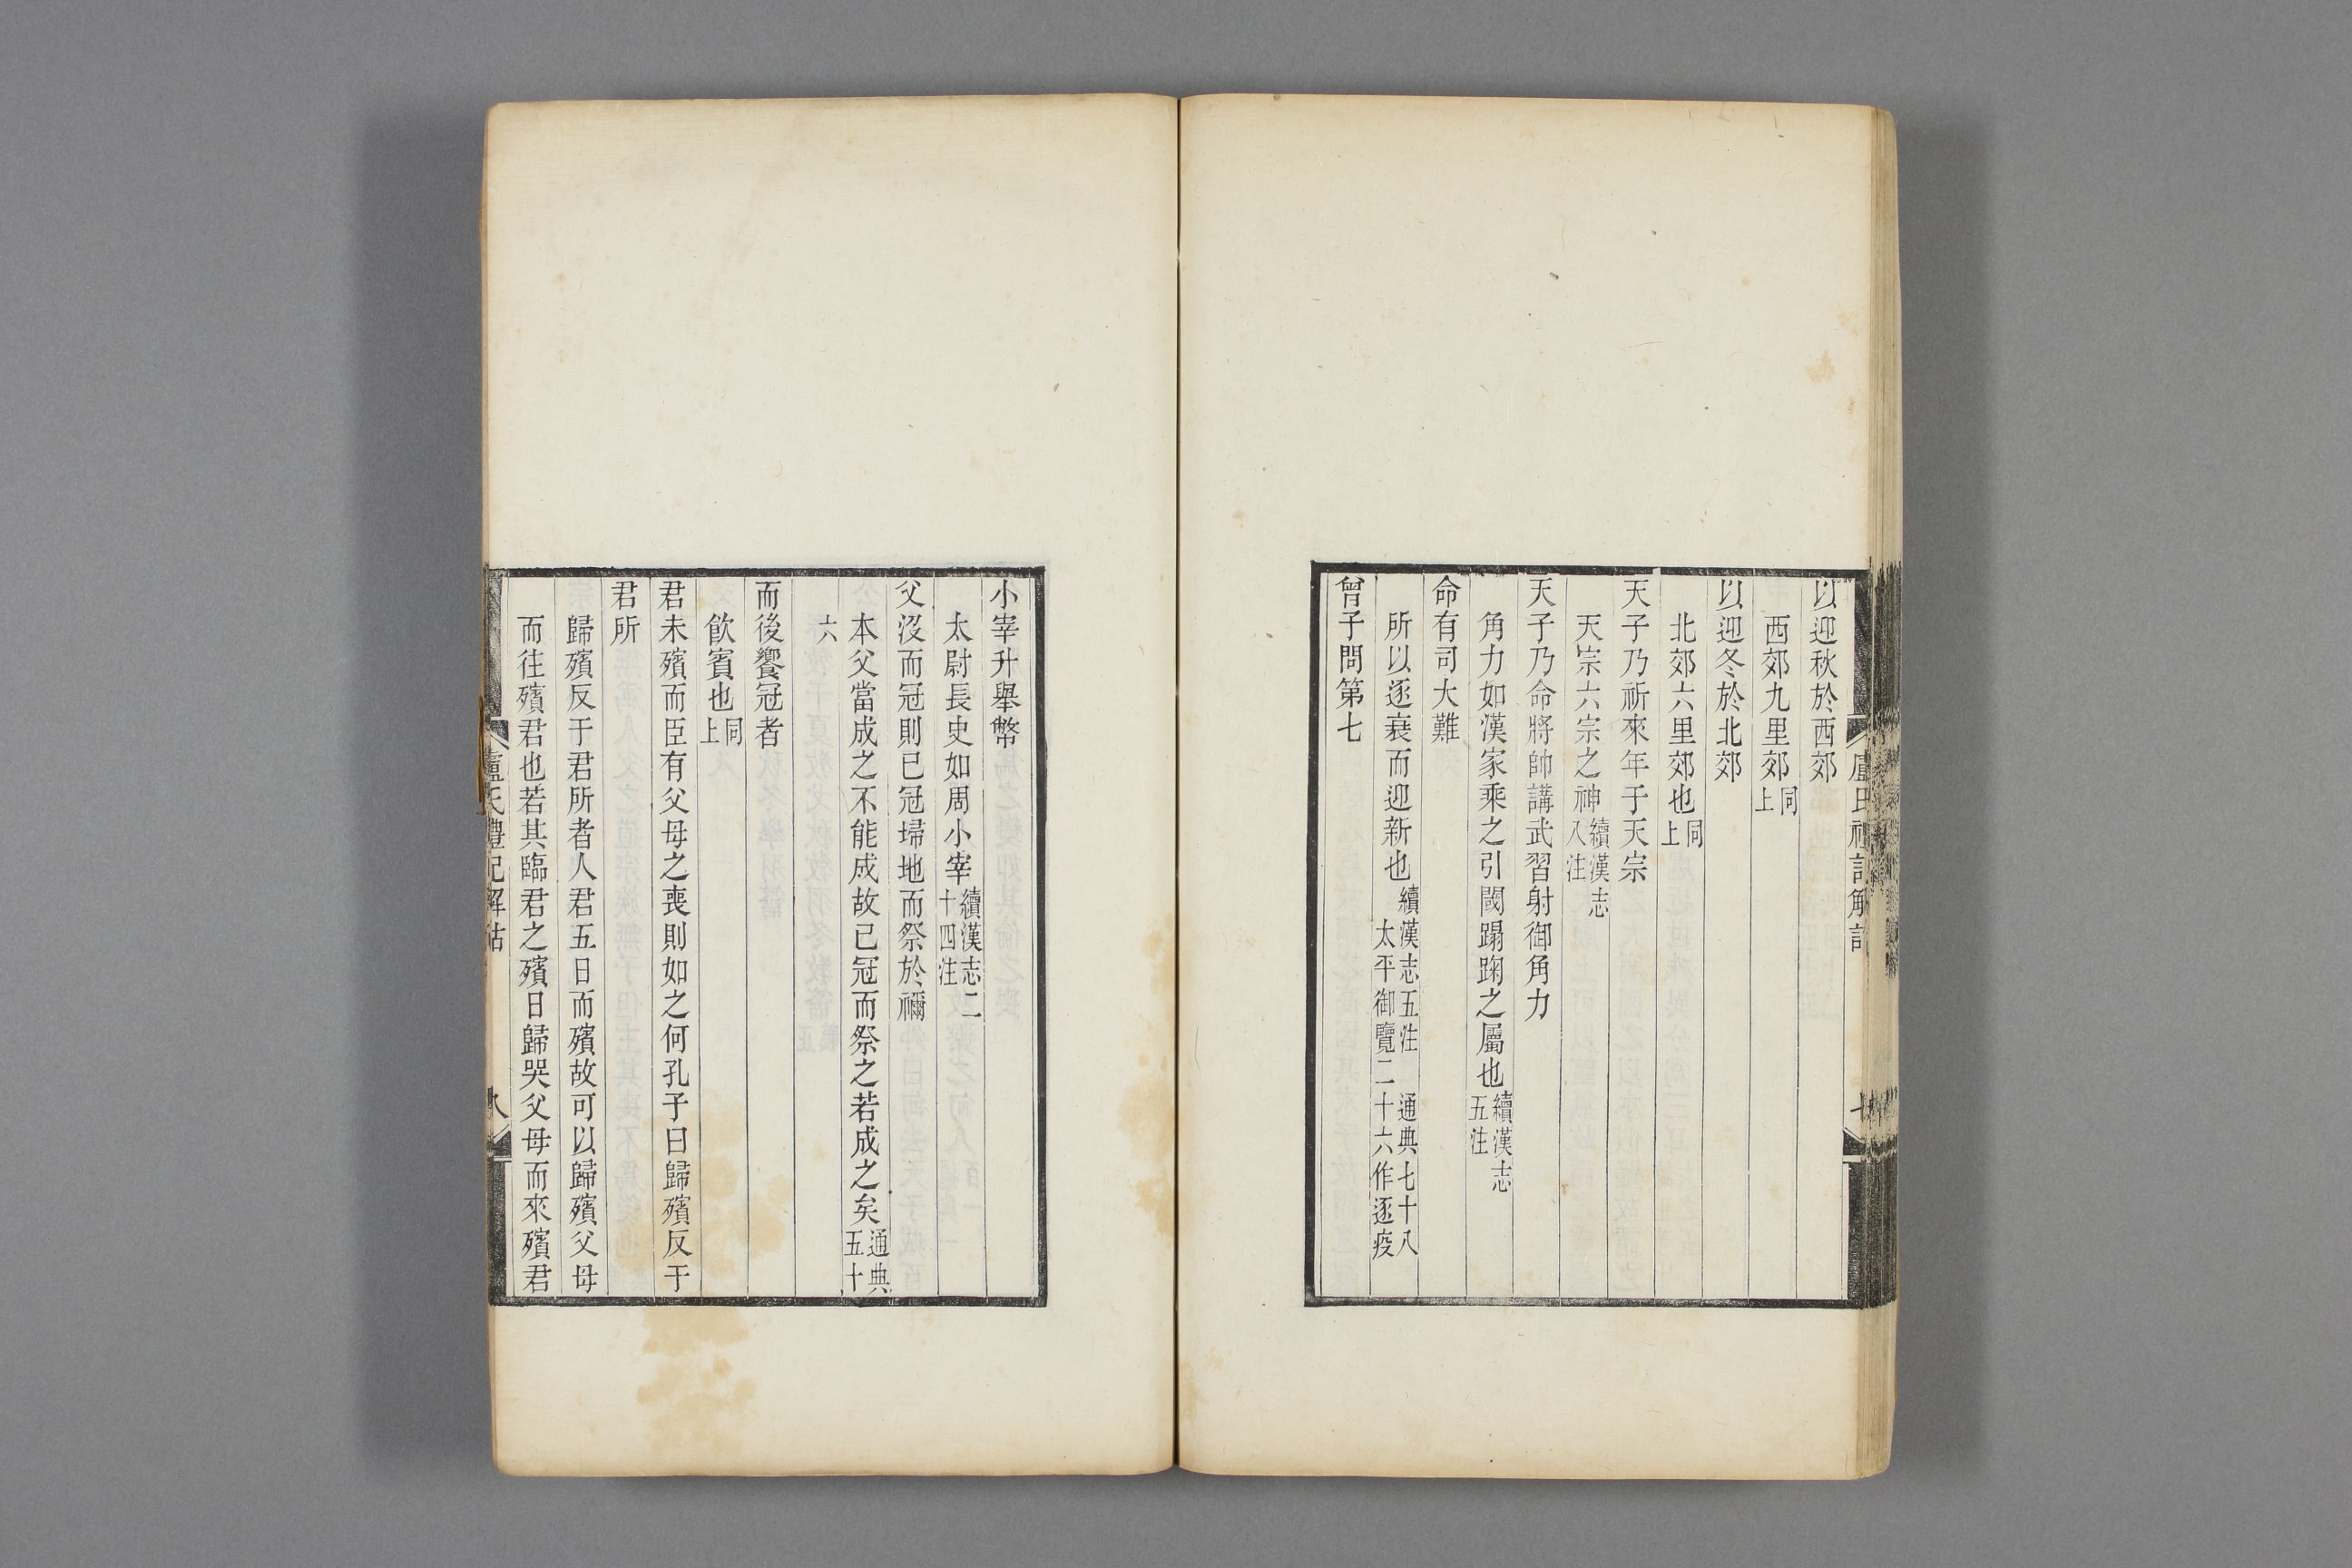 以迎秋於西郊
西郊九里郊同上
以迎冬於北郊
北郊六里郊也同上
天子乃祈來年于天宗
天宗六宗之神續漢志八注
天子乃命將帥講武習射御角力
角力如漢家乘之引閾蹋踘之屬也續漢志五注
命有司大難
所以逐衰而迎新也續漢志五注 通典七十八
太平御覽二十六作逐疫
曾子問第七
小宰升舉幣
太尉長史如周小宰續漢志二十四注
父沒而冠則已冠埽地而祭於禰
本父當成之不能成故已冠而祭之若成之矣通典五十
六
而後饗冠者
飲賓也同上
君未殯而臣有父母之喪則如之何孔子曰歸殯反于
君所
歸殯反于君所者人君五日而殯故可以歸殯父母
而往殯君也若其臨君之殯日歸哭父母而來殯君
盧氏禮記解詁
八